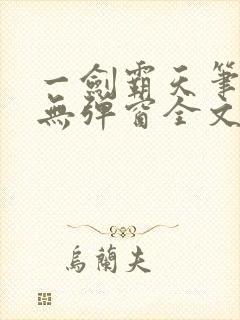 一劍霸天筆
無彈窗全文
烏蘭夫